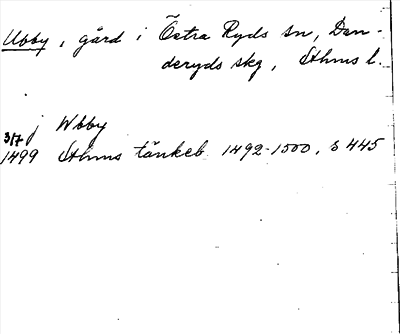 Ubby, gård i Östra Ryds sn, Dan-
deryds skg, Sthms l.
j Wbby
3/7
1499 Sthms tänkeb 1492-1500, s 445